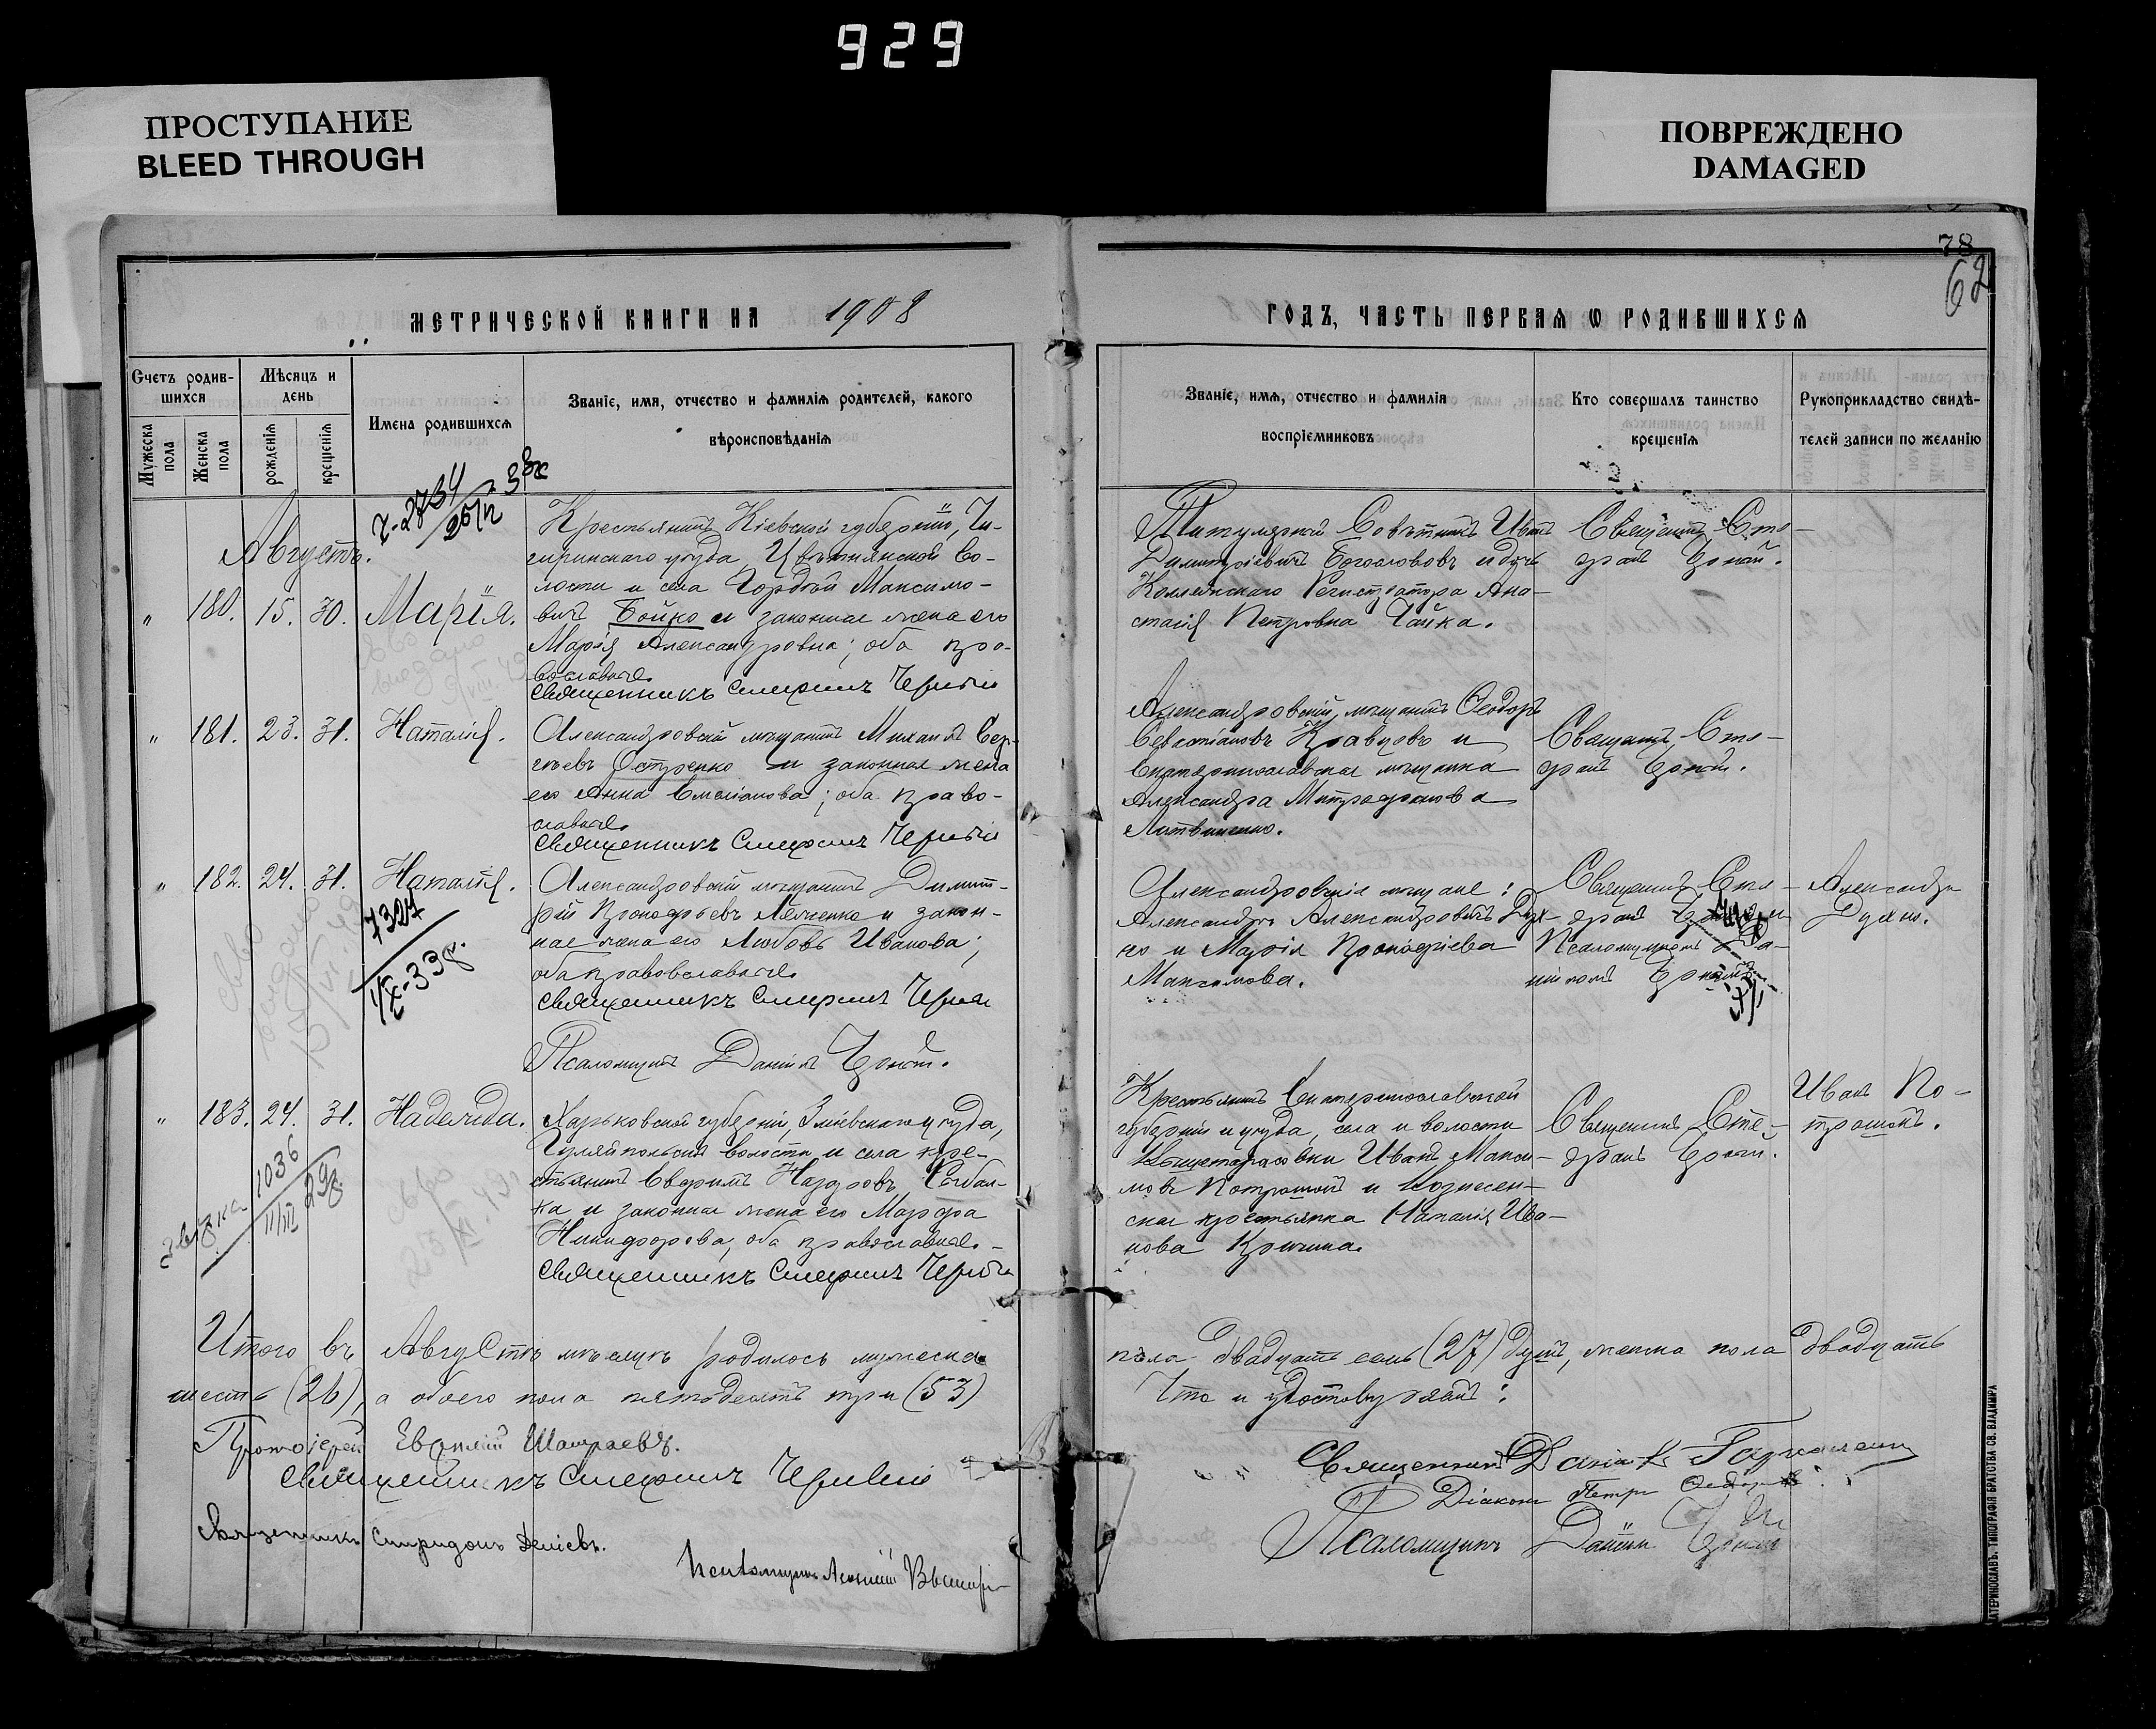 929
ПРОСТУПАНИЕ
BLEED THROUGH
ПОВРЕЖДЕНО
DAMAGED
78
62
МЕТРИЧЕСКОЙ КНИГИ НА 1908
ГОДЪ, ЧАСТЬ ПЕРВАЯ Ѡ РОДИВШИХСЯ
Счетъ родив-
шихся
Мужеска пола
Женска пола
Мѣсяцъ и
день
рожденія
крещенія
Имена родившихся
Званіе, имя, отчество и фамилія родителей, какого
вѣроисповѣданія
Званіе, имя, отчество и фамилія
воспріемниковъ
Кто совершалъ таинство
крещенія
Рукоприкладство свидѣ-
телей записи по желанію
Августъ.
" 180. 15. 30. Марія.
Крестьянинъ Кіевской губерніи, Чи-
гиринскаго уѣзда Цвѣтнянской во-
лости и села Гордѣй Максимо-
вичъ Бойко и законная жена его
Марія Александровна; оба пра-
вославные.
Священникъ Стефанъ Черный
Титулярный Совѣтникъ Иванъ
Димитріевичъ Богословъ и дочь
Коллежскаго Регистратора Ана-
стасія Петровна Чайка.
Священникъ Сте-
фанъ Чорный.
" 181. 23. 31. Наталія.
Александровскій мѣщанинъ Михаилъ Сер-
гѣевъ Остренко и законная жена
его Анна Емеліанова; оба право-
славные.
Священникъ Стефанъ Черный
Александровскій мѣщанинъ Ѳеодоръ
Севастіановъ Кравцовъ и
Екатеринославская мѣщанка
Александра Митрофанова
Литвиненко.
Священникъ Сте-
фанъ Чорный.
" 182. 24. 31. Наталія.
7327
Александровскій мѣщанинъ Димит-
рій Прокофьевъ и закон-
ная жена его Любовь Иванова;
оба православные.
Священникъ Стефанъ Черный
Псаломщикъ Даніилъ Чорный.
Александровскіе мѣщане:
Александръ Александровичъ Дух-
но и Марія Прокофіева
Максимова.
Священникъ Сте-
фанъ Чорный и
Псаломщикъ Да-
ніилъ Чорный
Александръ
Духно.
" 183. 24. 31. Надежда.
1036
Харьковской губерніи, Зміевскаго уѣзда,
Гуляйпольской волости и села кре-
стьянинъ Евфимъ Назаровъ
и законная жена его Марфа
Никифорова, оба православные.
Священникъ Стефанъ Черный
Крестьянинъ Екатеринославской
губерніи и уѣзда, села и волости
Вышетарасовки Иванъ Макси-
мовъ Потрошокъ и Вознесен-
ская крестьянка Наталія Ива-
нова Кричина.
Священникъ Сте-
фанъ Чорный.
Иванъ По-
трошокъ.
Итого въ Августѣ мѣсяцѣ родилось мужеска
пола двадцать семь (27) душъ, женска пола двадцать
шесть (26), а обоего пола пятьдесятъ три (53)
Что и удостовѣряемъ:
Протоіерей Шатраевъ.
Священникъ Стефанъ Черный
Священникъ Спиридонъ
Псаломщикъ
Священникъ Даніилъ
Діаконъ Петръ
Псаломщикъ Даніилъ Чорный
ЕКАТЕРИНОСЛАВЪ. ТИПОГРАФІЯ БРАТСТВА СВ. ВЛАДИМІРА